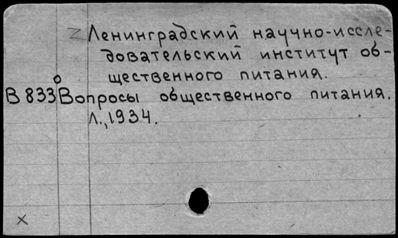 Ленинградский научно-иссле-
довательский институт об-
щественного питания.
В 833 Вопросы общественного питания.
Л., 1934.